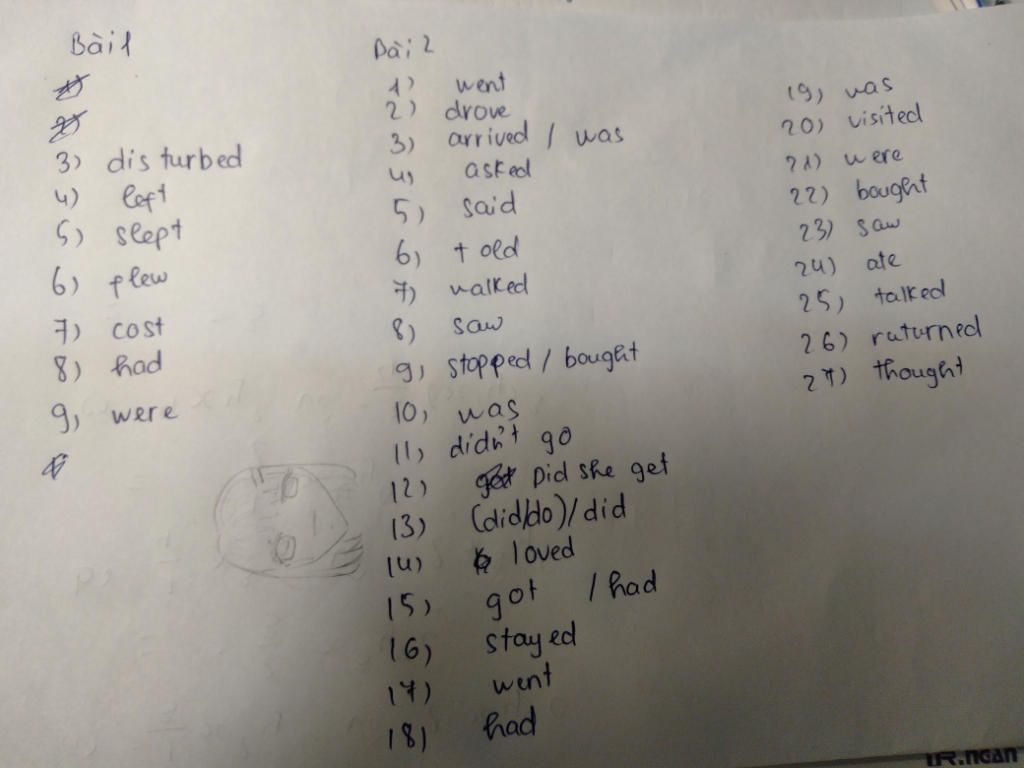 Bài 1
3) disturbed
4) left
5) slept
6) flew
7) cost
8) had
9, were
Bài 2
1) went
2) drove
3) arrived / was
4, asked
5) said
6, told
7) walked
8) saw
9, stopped / bought
10, was
11, didn't go
12) Did she get
13) (did/do)/did
14) loved
15) got / had
16) stayed
17) went
18) had
19, was
20) visited
21) were
22) bought
23) saw
24) ate
25, talked
26) raturned
27) thought
UR.ngan